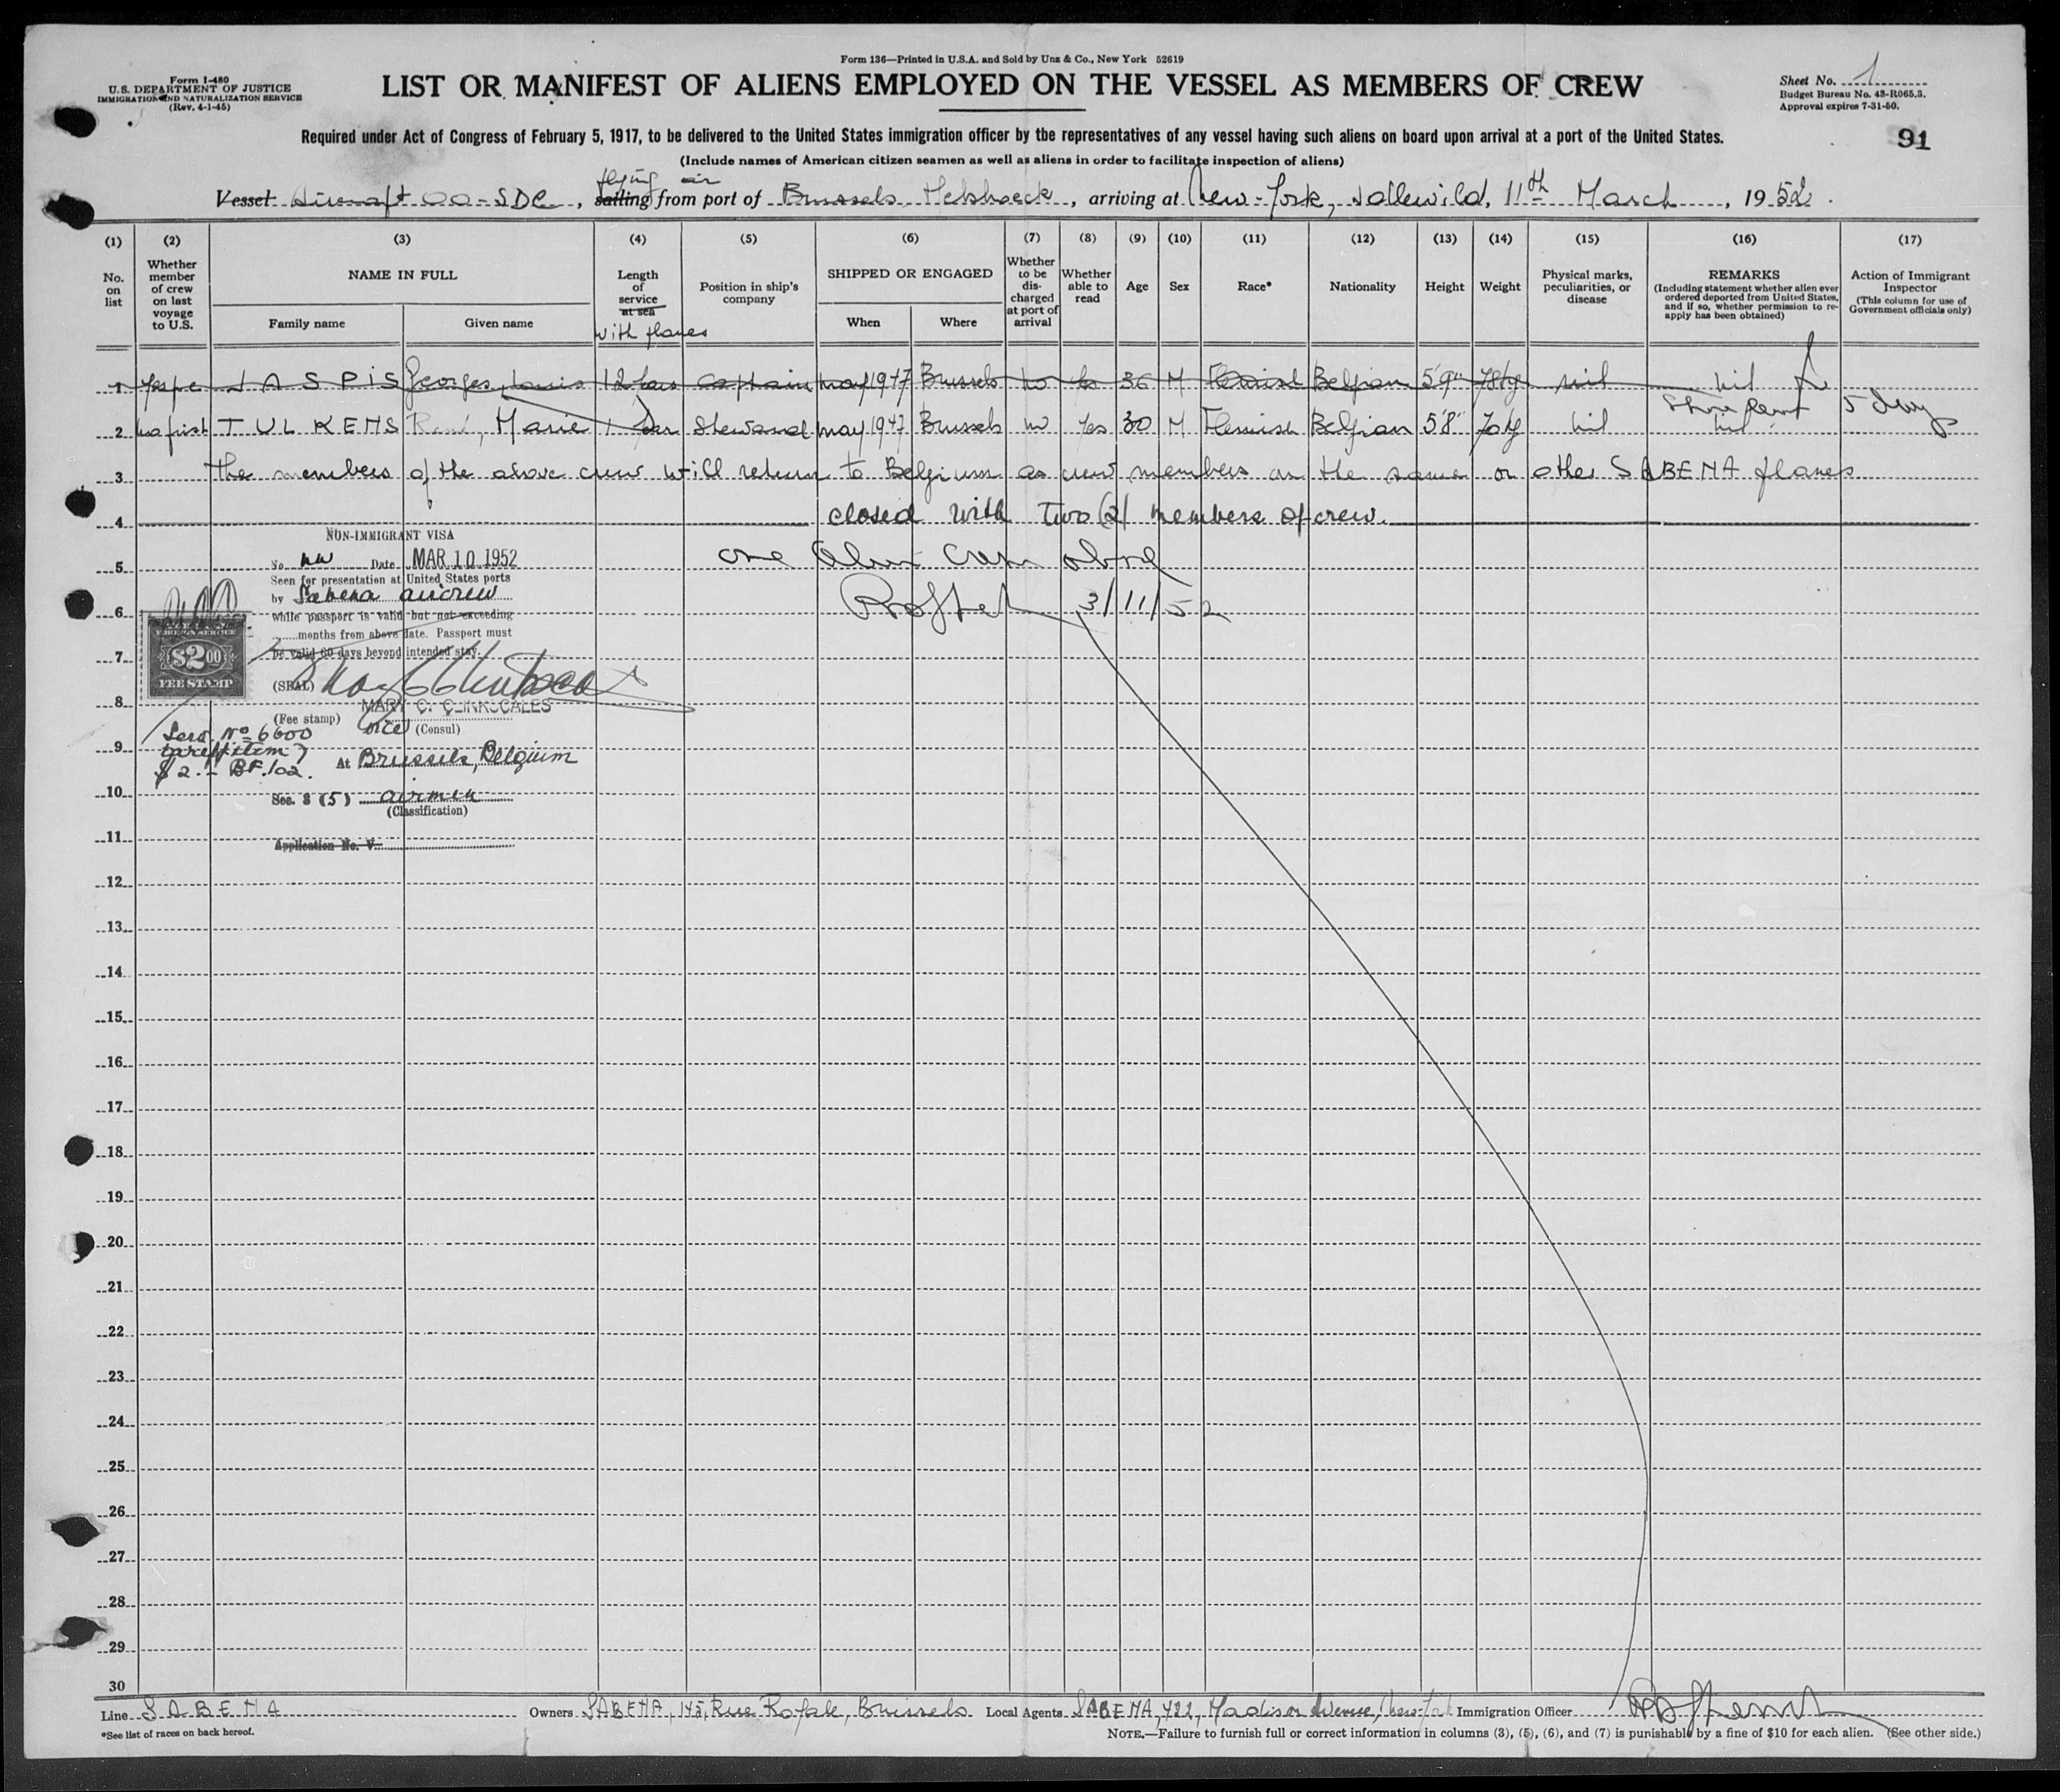 Form 136—Printed in U.S.A. and Sold by Unz & Co., New York 52619
Form I-480
U.S. DEPARTMENT OF JUSTICE
IMMIGRATION AND NATURALIZATION SERVICE
(Rev. 4-1-45)
LIST OR MANIFEST OF ALIENS EMPLOYED ON THE VESSEL AS MEMBERS OF CREW
Sheet No. 1
Budget Bureau No. 43-R065.3.
Approval expires 7-31-50.
Required under Act of Congress of February 5, 1917, to be delivered to the United States immigration officer by the representatives of any vessel having such aliens on board upon arrival at a port of the United States.
91
(Include names of American citizen seamen as well as aliens in order to facilitate inspection of aliens)
flying air
Vessel Aircraft OO-SDC, sailing from port of Brussels Melsbroeck, arriving at New-York, Idlewild, 11th March, 1952.
(1) (2) (3) (4) (5) (6) (7) (8) (9) (10) (11) (12) (13) (14) (15) (16) (17)
No. on list
Whether member of crew on last voyage to U.S.
NAME IN FULL
Family name
Given name
Length of service at sea
with planes
Position in ship's company
SHIPPED OR ENGAGED
When
Where
Whether to be discharged at port of arrival
Whether able to read
Age
Sex
Race*
Nationality
Height
Weight
Physical marks, peculiarities, or disease
REMARKS
(Including statement whether alien ever ordered deported from United States, and if so, whether permission to reapply has been obtained)
Action of Immigrant Inspector
(This column for use of Government officials only)
1 JASPIS Georges, Louis 12 Captain May 1947 Brussels no yes 36 M Flemish Belgian 5'9" 78kg nil nil
2 no first TULKENS René, Marie 1 year Steward May 1947 Brussels no yes 30 M Flemish Belgian 5'8" 70kg nil nil
3 the members of the above crew will return to Belgium as crew members on the same or other SABENA planes
4 closed with Two (2) members of crew.
NON-IMMIGRANT VISA
No. Date MAR 10 1952
5 one Alien Crew above
Seen for presentation at United States ports
by Sabena aircrew
6 3/11/52
while passport is valid but not exceeding
months from above date. Passport must
be valid 60 days beyond intended stay.
7
$2.00
FEE STAMP
(SEAL)
8
MARY C. CLINKSCALES
(Fee stamp) Vice (Consul)
Serv. No 6600
9
tariff item 7
$2.- BF.102.
At Brussels, Belgium
10
Sec. 3 (5) airmen
(Classification)
11
Application No. V
12
13
14
15
16
17
18
19
20
21
22
23
24
25
26
27
28
29
30
Line SABENA Owners SABENA, 145, Rue Royale, Brussels Local Agents SABENA, 422, Madison Avenue, New-York Immigration Officer
*See list of races on back hereof.
NOTE.—Failure to furnish full or correct information in columns (3), (5), (6), and (7) is punishable by a fine of $10 for each alien. (See other side.)